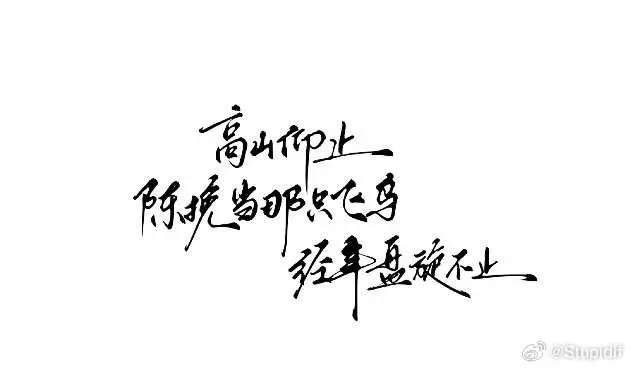 高山仰止
陈挽当那只飞鸟
经年盘旋不止
@Stupidlf